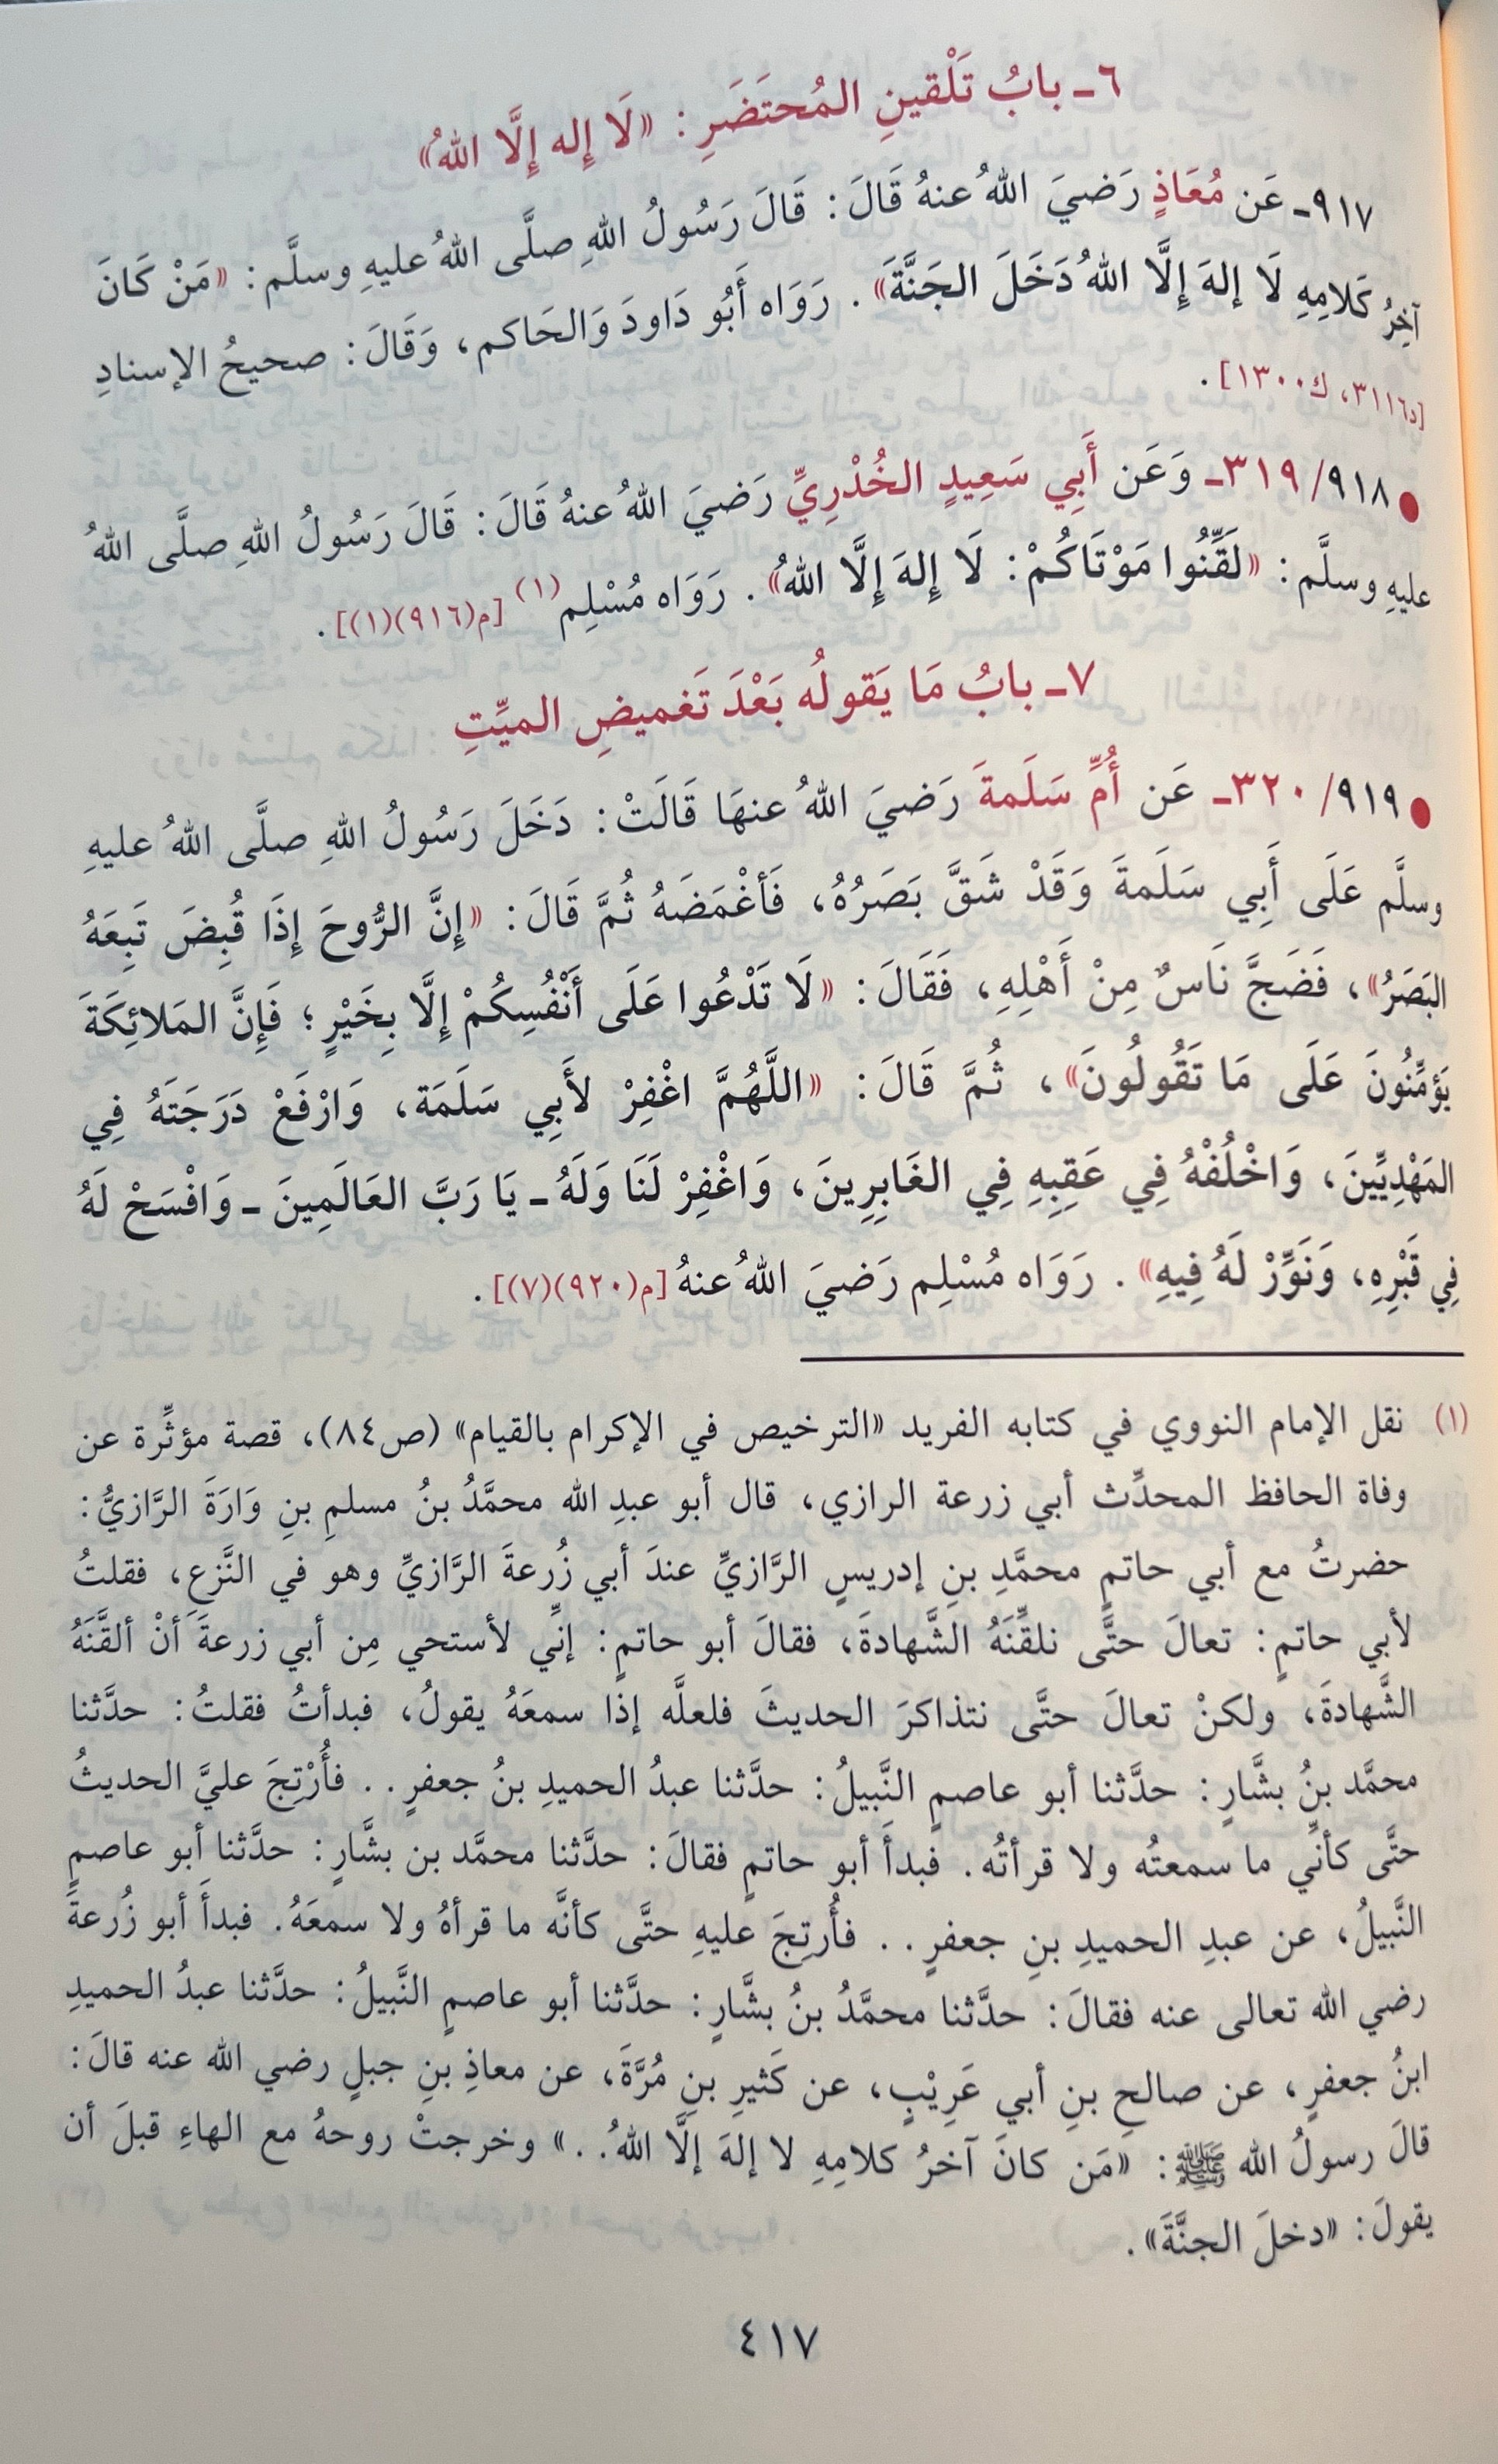 ٦ـ بابُ تَلْقينِ المُحتَضَرِ: «لَا إِله إِلَّا اللهُ»
٩١٧ـ عَن مُعَاذٍ رَضيَ اللهُ عنهُ قَالَ: قَالَ رَسُولُ اللهِ صلَّى اللهُ عليهِ وسلَّم: «مَنْ كَانَ
آخِرُ كَلامِهِ لَا إلهَ إِلَّا اللهُ دَخَلَ الجَنَّةَ». رَوَاه أَبُو دَاودَ وَالحَاكم، وَقَالَ: صحيحُ الإسنادِ
[د٣١١٦، ك١٣٠٠].
● ٩١٨/ ٣١٩ـ وَعَن أَبِي سَعِيدٍ الخُدْرِيِّ رَضيَ اللهُ عنهُ قَالَ: قَالَ رَسُولُ اللهِ صلَّى اللهُ
عليهِ وسلَّم: «لَقِّنُوا مَوْتَاكُمْ: لَا إِلهَ إِلَّا اللهُ». رَوَاه مُسْلِم(١) [م(٩١٦)(١)].
٧ـ بابُ مَا يَقولُه بَعْدَ تَغميضِ الميِّتِ
● ٩١٩/ ٣٢٠ـ عَن أُمِّ سَلَمةَ رَضيَ اللهُ عنهَا قَالَتْ: دَخَلَ رَسُولُ اللهِ صلَّى اللهُ عليهِ
وسلَّم عَلَى أَبِي سَلَمةَ وَقَدْ شَقَّ بَصَرُهُ، فَأَغْمَضَهُ ثُمَّ قَالَ: «إِنَّ الرُّوحَ إِذَا قُبِضَ تَبِعَهُ
البَصَرُ»، فَضَجَّ نَاسٌ مِنْ أَهْلِهِ، فَقَالَ: «لَا تَدْعُوا عَلَى أَنْفُسِكُمْ إِلَّا بِخَيْرٍ؛ فَإِنَّ المَلائِكَةَ
يَؤمِّنُونَ عَلَى مَا تَقُولُونَ»، ثُمَّ قَالَ: «اللَّهُمَّ اغْفِرْ لأَبِي سَلَمَة، وَارْفَعْ دَرَجَتَهُ فِي
المَهْدِيِّينَ، وَاخْلُفْهُ فِي عَقِبِهِ فِي الغَابِرِينَ، وَاغْفِرْ لَنَا وَلَهُ ـ يَا رَبَّ العَالَمِينَ ـ وَافْسَحْ لَهُ
فِي قَبْرِهِ، وَنَوِّرْ لَهُ فِيهِ». رَوَاه مُسْلِم رَضيَ اللهُ عنهُ [م(٩٢٠)(٧)].
(١) نقل الإمام النووي في كتابه الفريد «الترخيص في الإكرام بالقيام» (ص٨٤)، قصة مؤثِّرة عن
وفاة الحافظ المحدِّث أبي زرعة الرازي، قال أبو عبدِ الله محمَّدُ بنُ مسلمِ بنِ وَارَةَ الرَّازيُّ:
حضرتُ مع أبي حاتمٍ محمَّدِ بنِ إدريسٍ الرَّازيِّ عندَ أبي زُرعةَ الرَّازيِّ وهو في النَّزعِ، فقلتُ
لأبي حاتمٍ: تعالَ حتَّى نلقِّنَهُ الشَّهادةَ، فقالَ أبو حاتمٍ: إنِّي لأستحي مِن أبي زرعةَ أنْ ألقَّنَهُ
الشَّهادةَ، ولكنْ تعالَ حتَّى نتذاكرَ الحديثَ فلعلَّه إذا سمعَهُ يقولُ، فبدأتُ فقلتُ: حدَّثنا
محمَّد بنُ بشَّارٍ: حدَّثنا أبو عاصمٍ النَّبيلُ: حدَّثنا عبدُ الحميدِ بنُ جعفرٍ.. فأُرْتِجَ عليَّ الحديثُ
حتَّى كأنِّي ما سمعتُه ولا قرأتُه. فبدأَ أبو حاتمٍ فقالَ: حدَّثنا محمَّد بن بشَّارٍ: حدَّثنا أبو عاصمٍ
النَّبيلُ، عن عبدِ الحميدِ بنِ جعفرٍ.. فأُرتِجَ عليهِ حتَّى كأنَّه ما قرأهُ ولا سمعَهُ. فبدأَ أبو زُرعةَ
رضي الله تعالى عنه فقالَ: حدَّثنا محمَّدُ بنُ بشَّارٍ: حدَّثنا أبو عاصمٍ النَّبيلُ: حدَّثنا عبدُ الحميدِ
ابنُ جعفرٍ، عن صالحِ بنِ أبي عَرِيْبٍ، عن كَثيرِ بنِ مُرَّةَ، عن معاذِ بنِ جبلٍ رضي الله عنه قالَ:
قالَ رسولُ الله ﷺ: «مَن كانَ آخرُ كلامِهِ لا إلهَ إلَّا اللهُ..» وخرجتْ روحهُ مع الهاءِ قبلَ أن
يقولَ: «دخلَ الجنَّةَ».
٤١٧